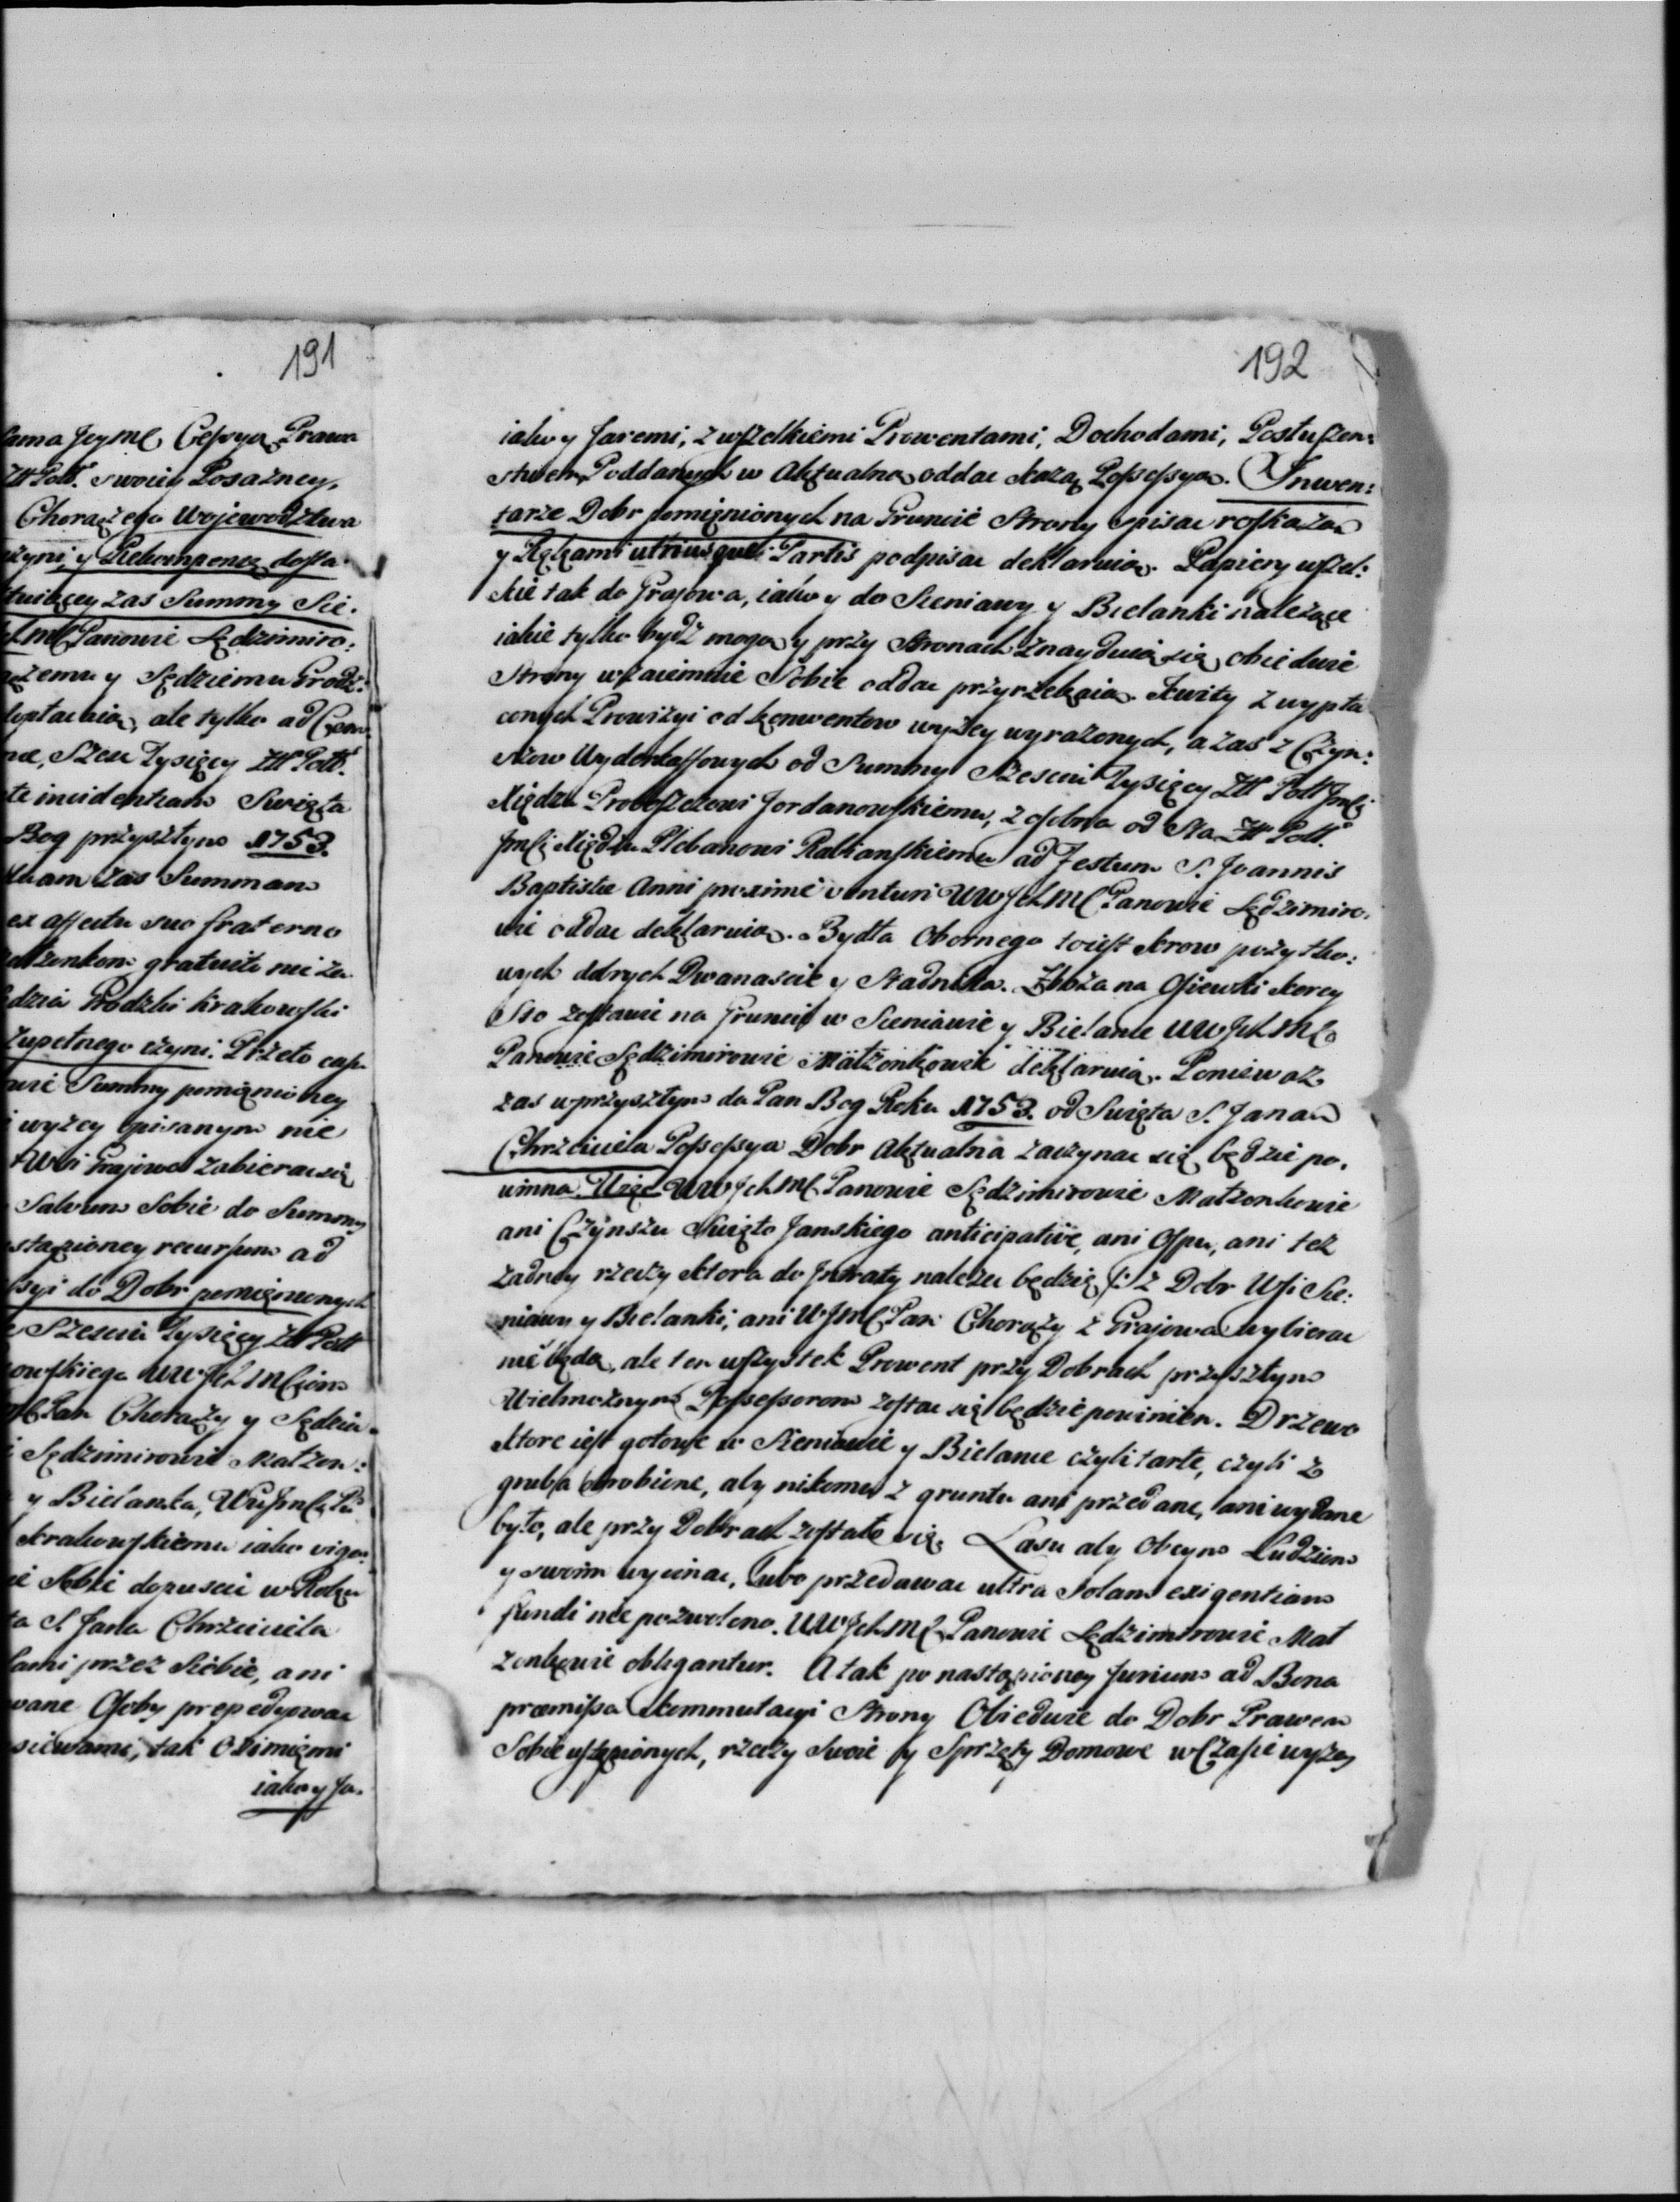 191
Jeymć Cessya Prawa
Złł Poll. swoiey Posażney,
Chorążego Wojewodztwa
y Rekompensę dosta:
zas Summy Sie:
Panowie Sędzimiro:
y Sędziemu Grodz:
ale tylko ad
Szesc Tysięcy Złł Poll.
incidentiam Swięta
Bog przyszłym 1753.
zas Summam
ex affectu suo fraterno
gratuite
Grodzki Krakowski
zupełnego czyni. Przeto
Summy pomięnioney
wyżey opisanym nie
Wsi Grajowa zabierac się
Salvum Sobie do Summy
recursum ad
do Dobr pomięnionych
Szesciu Tysięcy Złł Poll
UWJchMciom
Pan Chorąży y Sędzia
Sędzimirowie Małżon:
y Bielanka,
Krakowskiemu iako vigo:
Sobie dopuscic w Roku
S. Jana Chrzciciela
przez Siebie, ani
Osoby prepedyowac
tak Ozimięmi
iako y Ja.
192
iako y Jaremi, z wszelkiemi Prowentami, Dochodami, Posłuszen:
stwem Poddanych w Aktualną oddac każą Possessyą. Inwen:
tarze Dobr pomięnionych na Gruncie Strony spisac roskażą
y Rękami utriusque Partis podpisac deklaruią. Papiery wszel:
kie tak do Grajowa, iako y do Sieniawy y Bielanki należące
iakie tylko bydź mogą y przy Stronach znayduią się, obiedwie
Strony wzaiemnie Sobie oddac przyrzekaią. Kwity z wypła
conych Prowizyi od Konwentow wyżey wyrażonych, a zas z Czyn:
szow Wyderkaffowych od Summy Szesciu Tysięcy Złł Poll Jmści
Xiędzu Proboszczowi Jordanowskiemu, z osobna od Sta Złł Poll.
Jmści Xiędzu Plebanowi Rabianskiemu ad Festum S. Joannis
Baptistæ Anni proxime venturi UWJchMć Panowie Sędzimiro:
wie oddac deklaruią. Bydła Obornego toiest Krow pożytko:
wych dobrych Dwanascie y Stadnika. Zboża na Osiewki Korcy
Sto zostawic na Gruncie w Sieniawie y Bielance UWJchMć
Panowie Sędzimirowie Małżonkowie deklaruią. Poniewaz
zas w przyszłym da Pan Bog Roku 1753. od Swięta S. Jana
Chrzciciela Possessya Dobr Aktualna zaczynac się będzie po.
winna. Więc UWJchMć Panowie Sędzimirowie Małżonkowie
ani Czynszu Swięto Janskiego anticipative, ani Ospu, ani też
żadney rzeczy ktora do Intraty należec będzie z Dobr Wsi Sie:
niawy y Bielanki, ani WJMć Pan Chorąży z Grajowa wybierac
nie będą, ale ten wszystek Prowent przy Dobrach przyszłym
Wielmożnym Possessorom zostac się będzie powinien. Drzewo
ktore iest gotowe w Sieniawie y Bielance czyli tarte, czyli z
gruba obrobione, aby nikomu z gruntu ani przedane, ani wydane
było, ale przy Dobrach zostało się. Lasu aby Obcym Ludziom
y swoim wycinac, lubo przedawac ultra solam exigentiam
fundi nie pozwolono. UWJchMć Panowie Sędzimirowie Mał
żonkowie obligantur. A tak po nastąpioney Jurium ad Bona
præmissa kommutacyi Strony Obiedwie do Dobr Prawem
Sobie ustąpionych, rzeczy Swoie y Sprzęty Domowe w Czasie wyżey